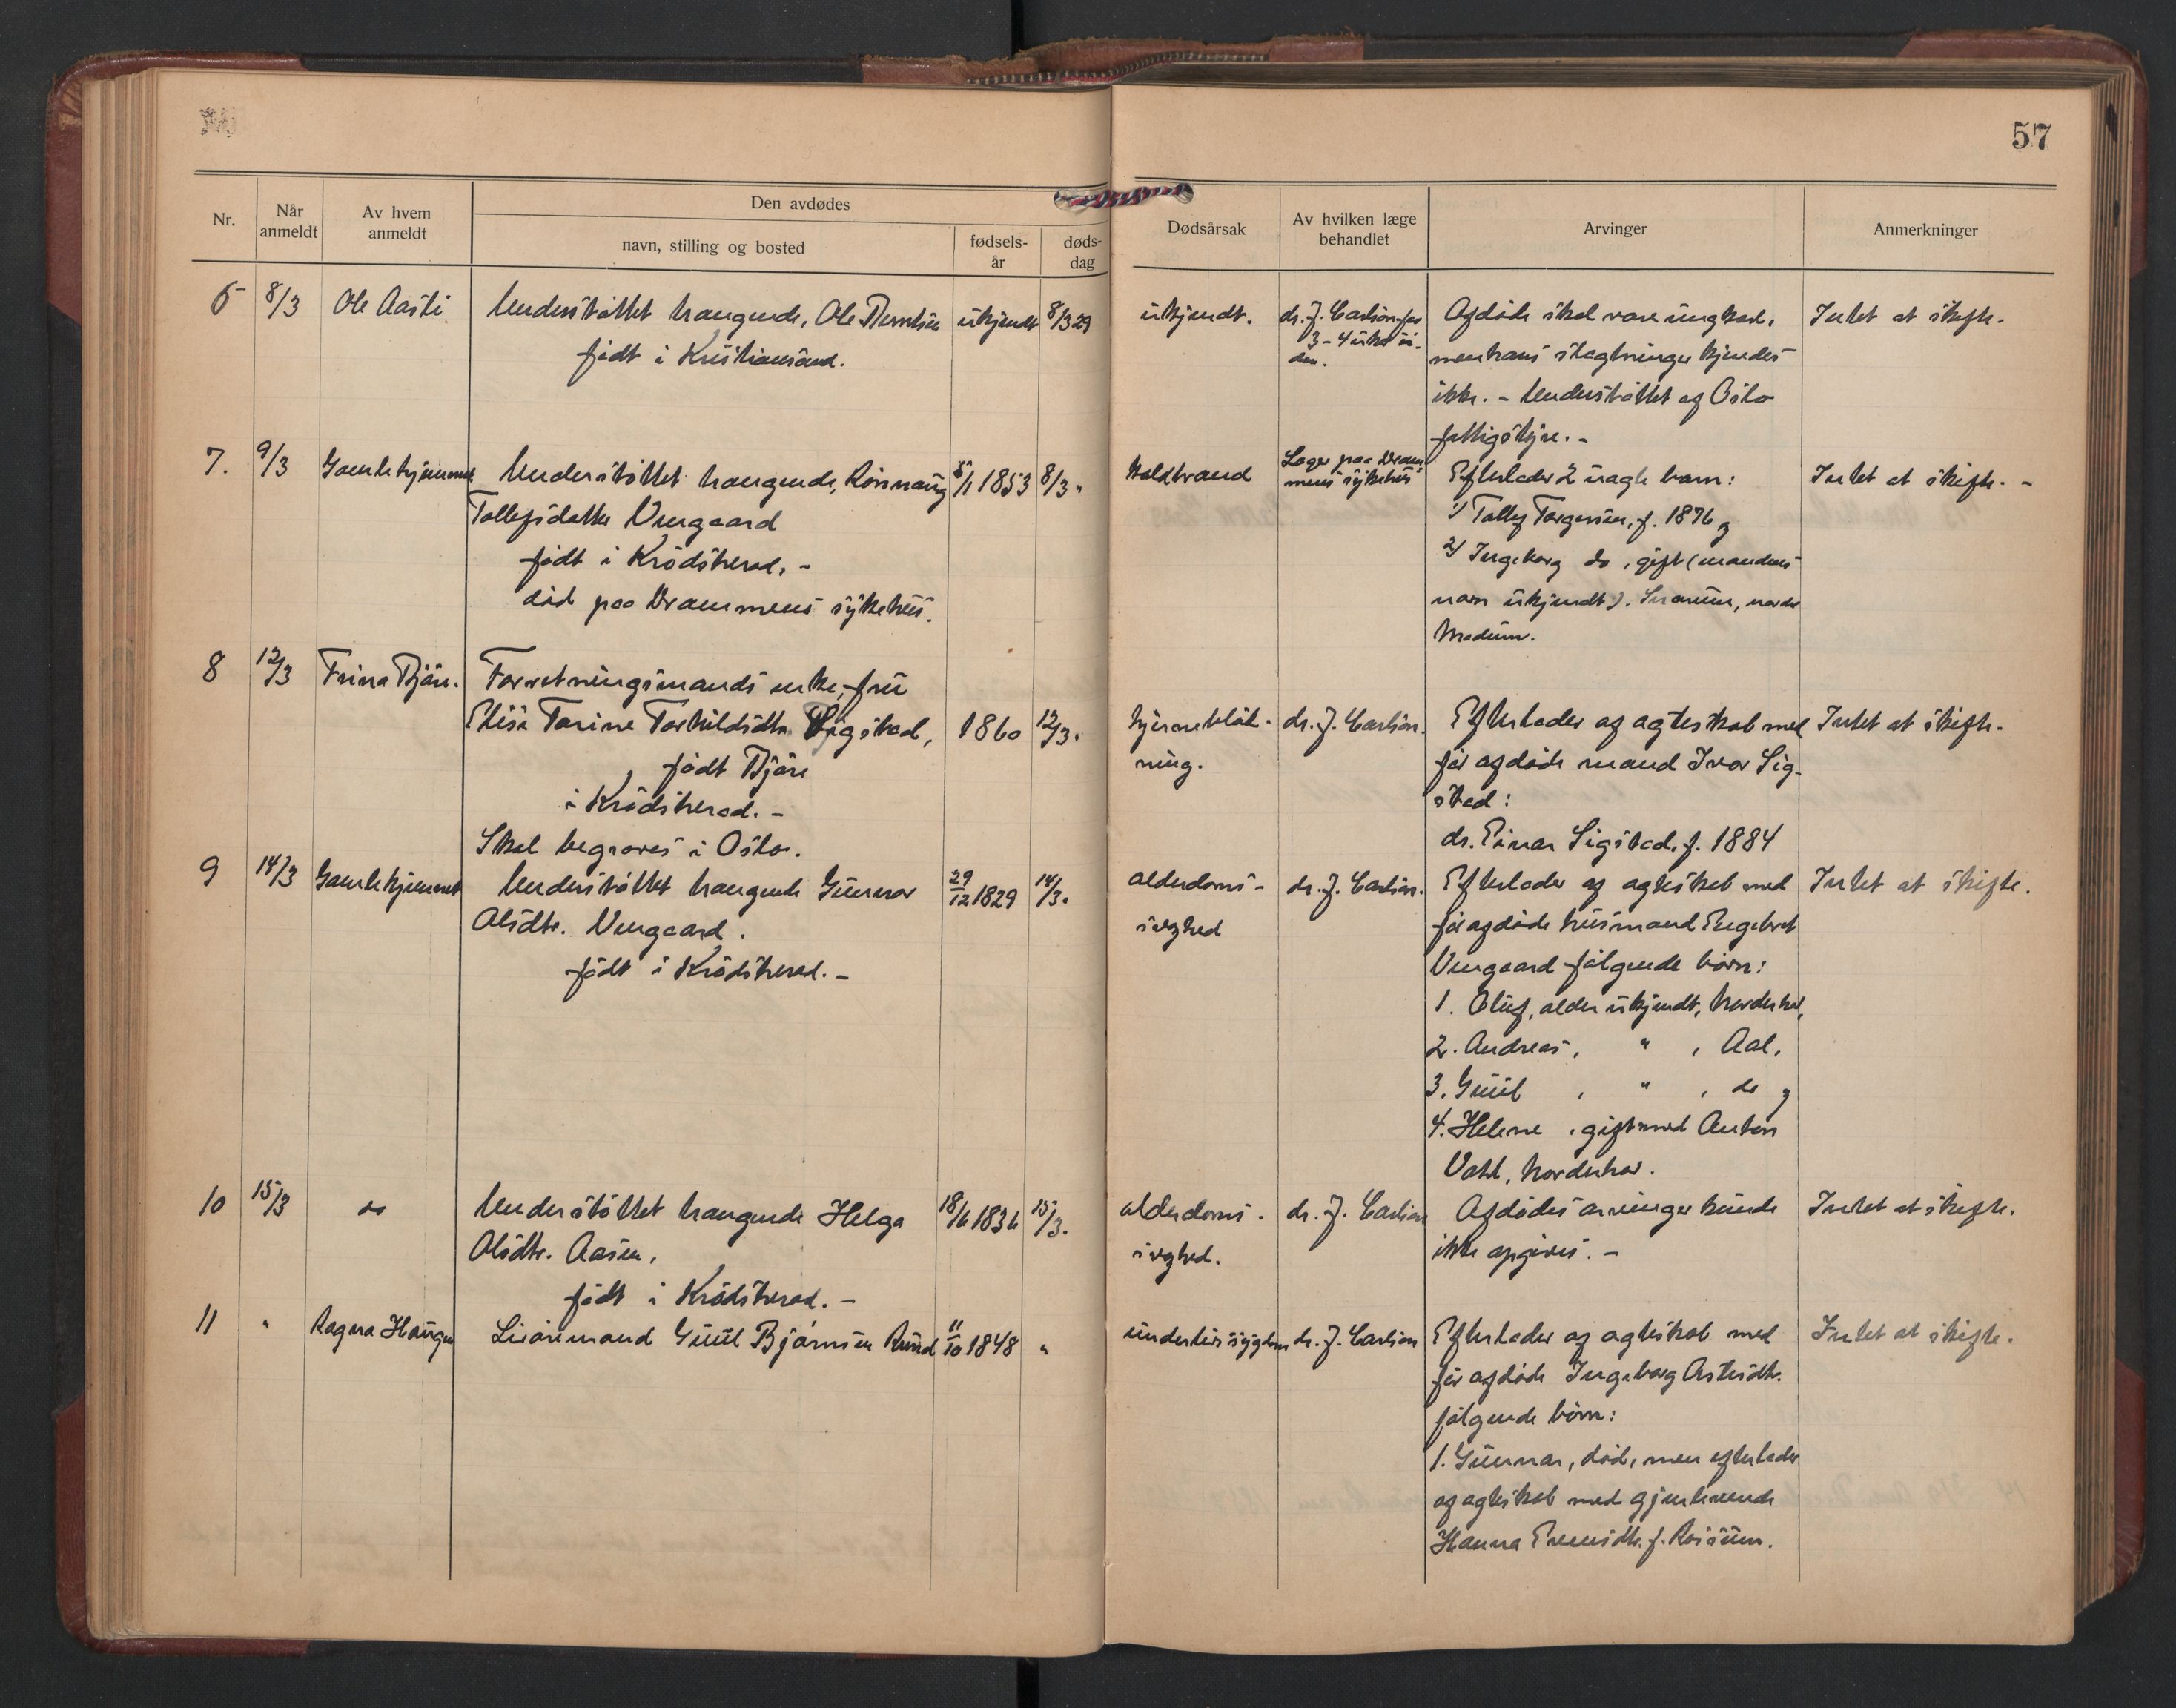 57
Nr.
Når anmeldt
Av hvem anmeldt
Den avdødes
navn, stilling og bosted
fødsels-år
døds-dag
Dødsårsak
Av hvilken læge behandlet
Arvinger
Anmerkninger
6 8/3 Ole Aasli Understøttet trængende, Ole Berntsen ukjendt 8/3 29
født i Kristiansand.
ukjendt. dr. J. Carlson for
3-4 uker si-
den.
Afdøde skal være ungkar,
men hans slægtninger kjendes
ikke. - Understøttet af Oslo
fattigstyre. -
Intet at skifte.
7. 9/3 Gamlehjemmet Understøttet trængende, Rønnaug 5/1 1853 8/3 "
Tollefsdatter Vengaard
født i Krødsherad, -
død paa Drammens sykehus.
Koldbrand
Læge paa Dram
mens sykehus
Efterlader 2 uægte barn:
1/ Tollef Torgersen, f. 1876 og
2/ Ingeborg do, gift (mandens
navn ukjendt). Snarum, nordre
Modum.
Intet at skifte. -
8 12/3 Trina Bjøre. Forretningsmands enke, fru
Elise Torine Torkildsdtr. Sigstad, 1860 12/3.
født Bjøre
i Krødsherad. -
Skal begraves i Oslo.
hjerneblød-
ning.
dr. J. Carlson.
Efterlader af ægteskab med
før afdøde mand Ivar Sig-
stad:
dr. Einar Sigstad, f. 1884
Intet at skifte.
9 14/3 Gamlehjemmet Understøttet trængende Gunnor 29/12 1829 14/3.
Olsdtr. Vengaard.
født i Krødsherad. -
alderdoms-
svaghed
dr. J. Carlson.
Efterlader af ægteskab med
før afdøde husmand Engebret
Vengaard følgende børn:
1. Oluf, alder ukjendt, Norderhov,
2. Andreas, " , Aal,
3. Guul , " , do og
4. Helene , gift med Anton
Norderhov.
Intet at skifte.
10 15/3 do Understøttet trængende Helga 18/6 1836 15/3.
Olsdtr. Aasen,
født i Krødsherad. -
alderdoms-
svaghed.
dr. J. Carlson
Afdødes arvinger kunde
ikke opgives. -
Intet at skifte.
11 " Ragna Haugen Livøremand Guul Bjørnsen Rund 11/10 1848 "
underlivssygdom dr. J. Carlson
Efterlader af ægteskab med
før afdøde Ingeborg Aslesdtr.
følgende børn:
1. Gunnar, død, men efterlader
af ægteskab med gjenlevende
Hanna Evensdtr. f.
Intet at skifte.